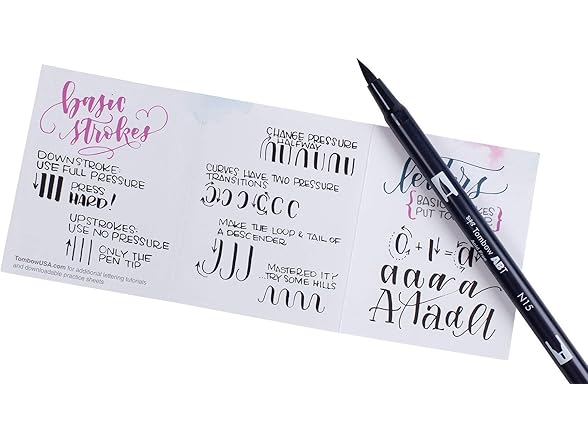 basic
strokes
DOWNSTROKE:
USE FULL PRESSURE
PRESS
HARD!
UPSTROKES:
USE NO PRESSURE
ONLY THE
PEN TIP
TombowUSA.com for additional lettering tutorials
and downloadable practice sheets
CHANGE PRESSURE
HALFWAY
CURVES HAVE TWO PRESSURE
TRANSITIONS
MAKE THE LOOP & TAIL OF
A DESCENDER
MASTERED IT?
...TRY SOME HILLS
letters
{BASIC
PUT TO
+ = a
a a a a
A A a d l t
Tombow ABT
N15